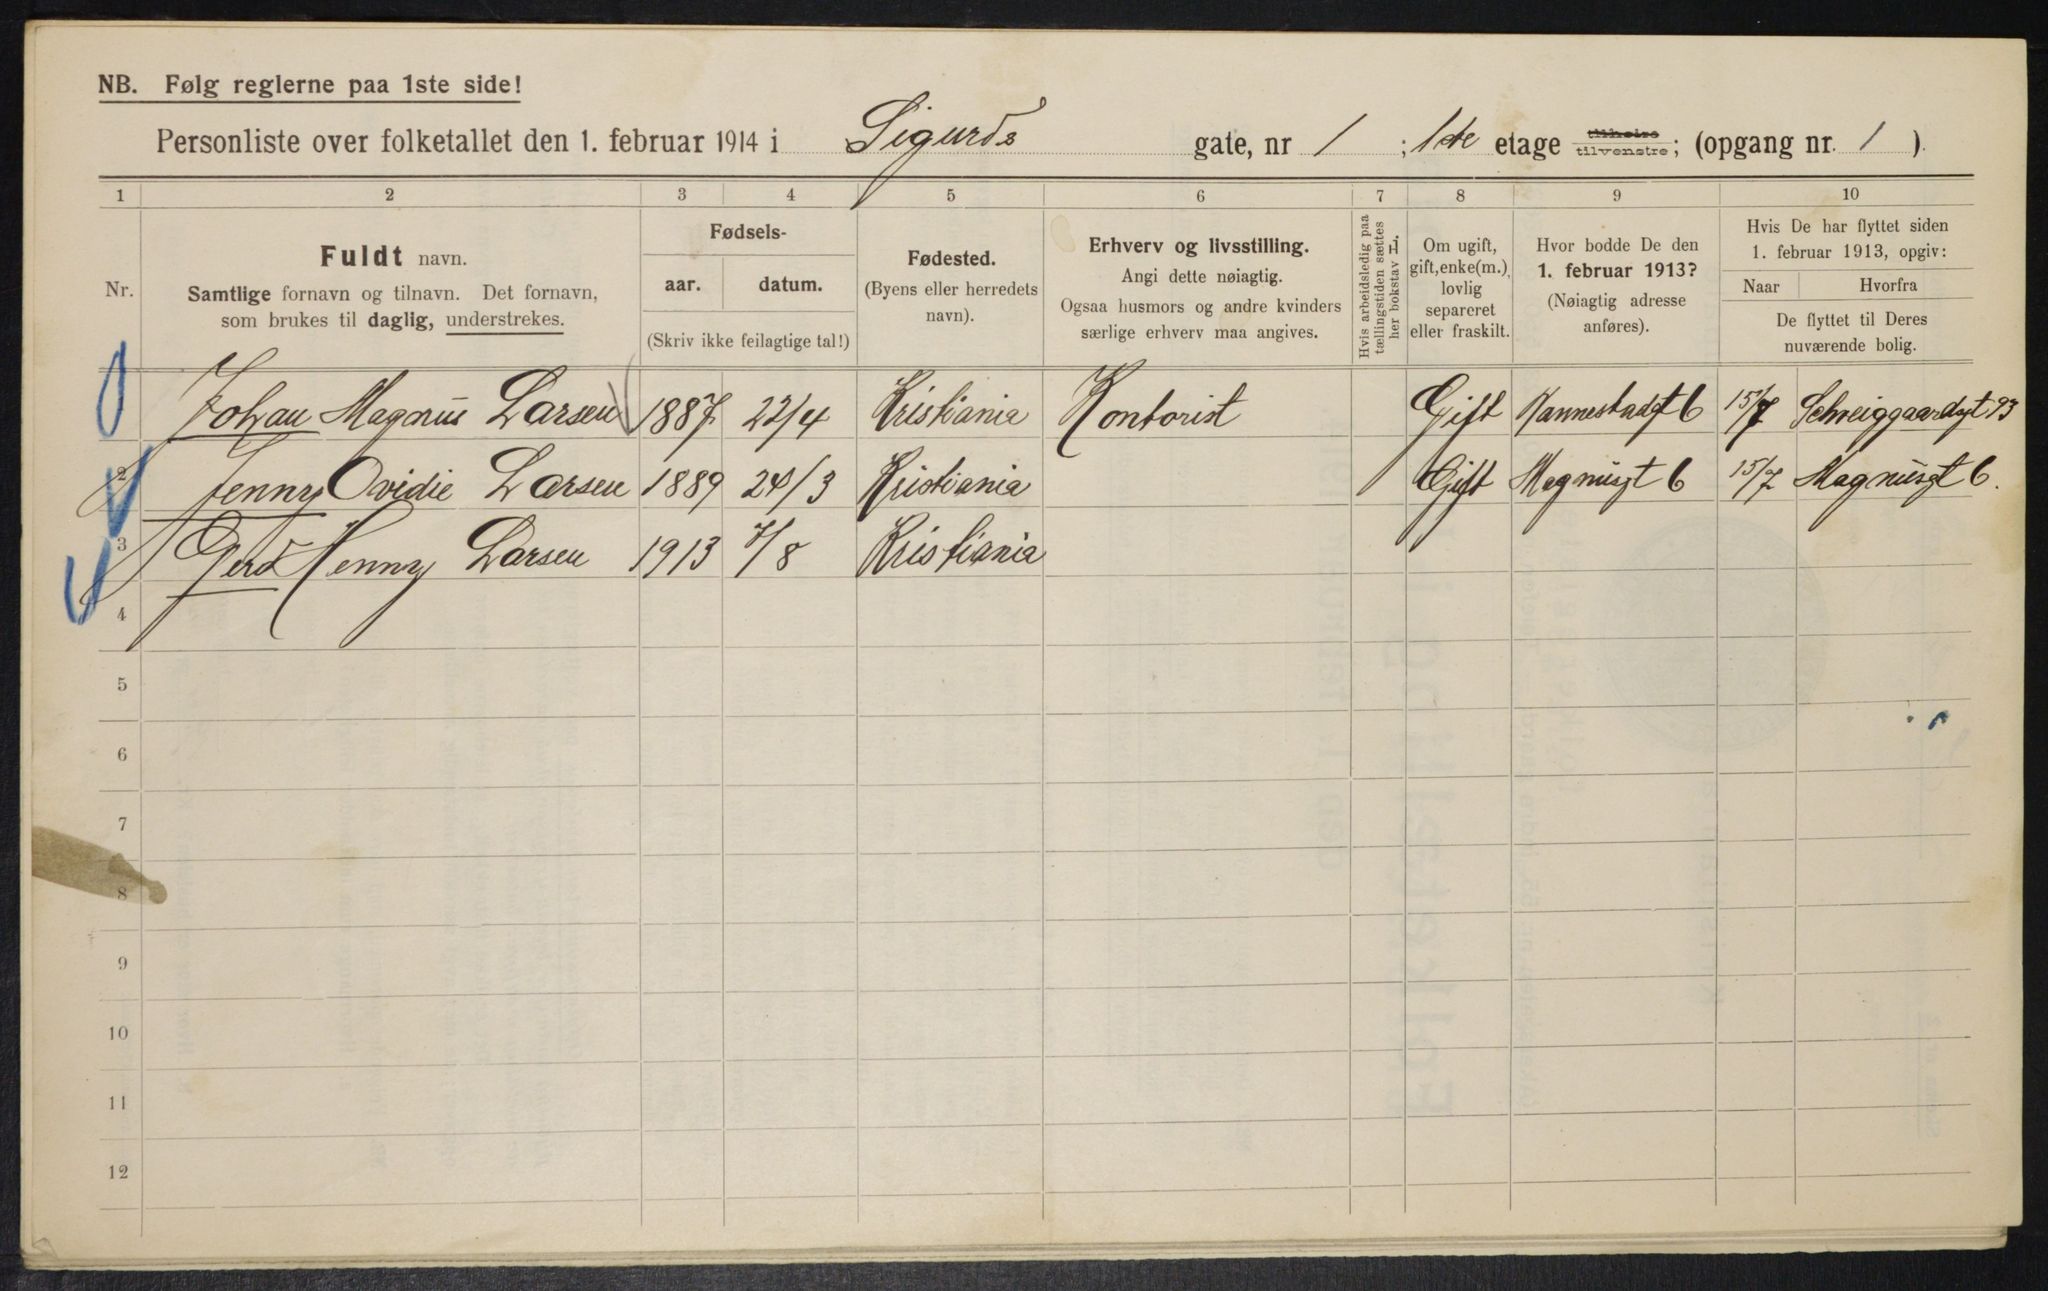 NB. Følg reglerne paa 1ste side!
Personliste over folketallet den 1. februar 1914 i Sigurds gate, nr 1 ; 1ste etage tilhøire tilvenstre; (opgang nr. 1 ).
1 2 3 4 5 6 7 8 9 10
Nr.
Fuldt navn.
Samtlige fornavn og tilnavn. Det fornavn,
som brukes til daglig, understrekes.
Fødsels-
aar. datum.
(Skriv ikke feilagtige tal!)
Fødested.
(Byens eller herredets
navn).
Erhverv og livsstilling.
Angi dette nøiagtig.
Ogsaa husmors og andre kvinders
særlige erhverv maa angives.
Hvis arbeidsledig paa
tællingstiden sættes
her bokstav L.
Om ugift,
gift, enke(m.),
lovlig
separeret
eller fraskilt.
Hvor bodde De den
1. februar 1913?
(Nøiagtig adresse
anføres).
Hvis De har flyttet siden
1. februar 1913, opgiv:
Naar Hvorfra
De flyttet til Deres
nuværende bolig.
Johan Magnus Larsen 1887 22/4 Kristiania Kontorist Gift Kannestadgt 6 15/7 Schweiggaardsgt 93
2 Jenny Ovidie Larsen 1889 24/3 Kristiania Gift Magnusgt 6 15/7 Magnusgt 6.
3 Gerd Henny Larsen 1913 7/8 Kristiania
4
5
6
7
8
9
10
11
12